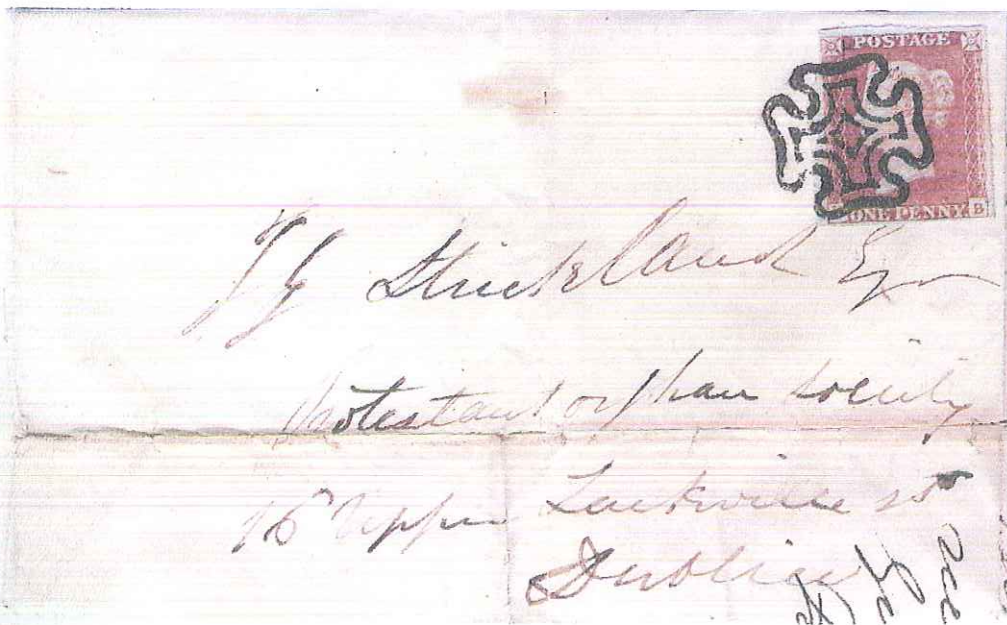 POSTAGE
ONE PENNY B
Strickland Esqr
Protestant orphan Society
16 Upper Sackville st
Dublin